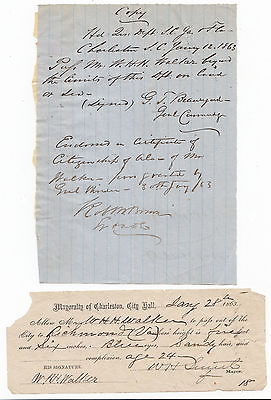 Copy
Hd Qrs Dept S.C. Ga & Fla
Charleston S.C. Jany 12, 1863
Pass Mr. W.H.H. Walker beyond
the limits of this Dpt on Land
or Sea -
(signed) G. T. Beauregard
Genl Commdg
Endorsed on Certificate of
Citizenship of Ala - of Mr
Walker - pass granted by
Genl
Mayoralty of Charleston, City Hall, Jany 28th 1863.
Allow Mr W H H Walker to pass out of the
City to Richmond Va his height is five feet
and six inches, Blue eyes, Sandy hair, and
complexion age 24
HIS SIGNATURE,
MAYOR.
W. H. Walker
18